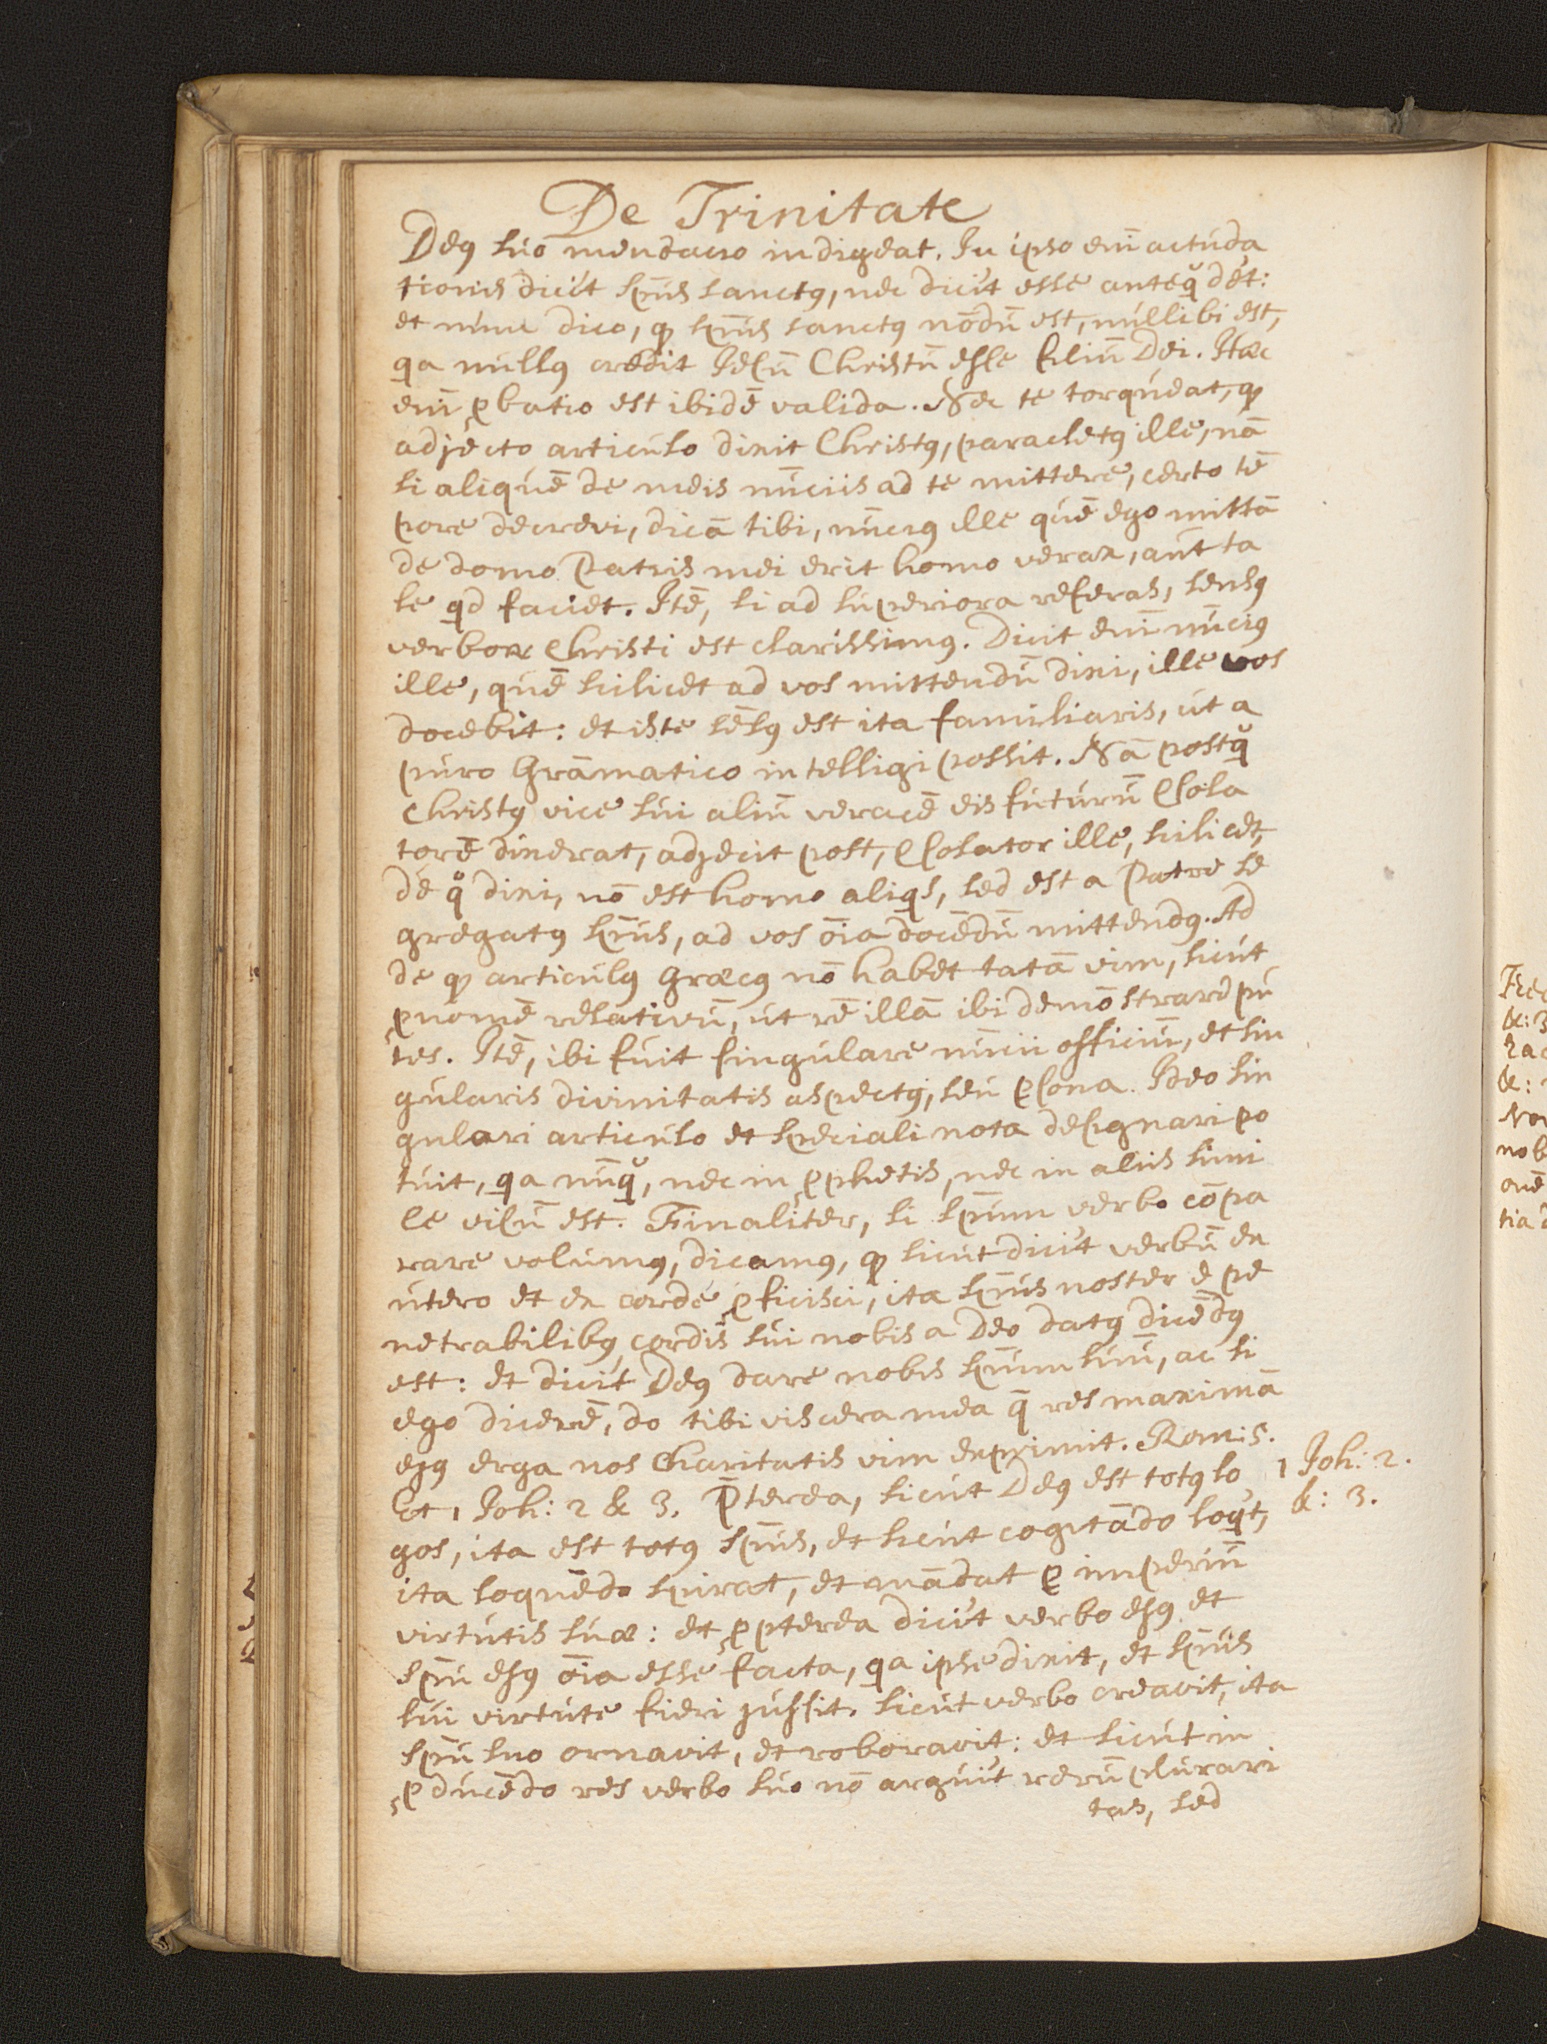 De Trinitate
Deꝰ suo mendacio indigeat. In ipso eni̅ actu da
tionis dicit̉ sp̅us sanctꝰ, nec dicit̉ esse anteq̃ det:
et nunc dico, ꝙ sp̅us sanctꝰ no̅du̅ est, nullibi est,
qa nullꝰ credit Jesu̅ Christu̅ esse filiu̅ Dei. Hæc
eni̅ ꝓbatio est ibide̅ valida. Nec te torqueat, ꝙ
adjecto articulo dixit Christꝰ, paracletꝰ ille, na̅
si alique̅ de meis nu̅ciis ad te mittere, certo te̅
pore decrevi, dica̅ tibi, nu̅ciꝰ ille que̅ ego mitta̅
de domo Patris mei erit homo verax, aut̅ ta
le qd faciet. Ite̅, si ad superiora referas, sensꝰ
verboꝝ Christi est clarissimꝰ. Dicit eni̅ nu̅ciꝰ
ille, que̅ scilicet ad vos mittendu̅ dixi, ille vos
docebit: et iste se̅sꝰ est ita familiaris, ut a
puro Gra̅matico intelligi possit. Na̅ postq̃
Christꝰ vice sui aliu̅ verace̅ eis futuru̅ ↄsola
tore̅ dixerat, adjecit post, ↄsolator ille, scilicet,
de qͦ dixi, no̅ est homo aliqs, sed est a Patre se
gregatꝰ sp̅us, ad vos o̅ia doce̅du̅ mittendꝰ. Ad
de ꝙ articulꝰ græcꝰ no̅ habet tata̅ vim, sicut
ꝓnome̅ relativu̅, ut re̅ illa̅ ibi demo̅strare pu
tes. Ite̅, ibi fuit singulare nu̅cii officiu̅, et sin
gularis divinitatis aspectꝰ, seu ꝑsona. Ideo sin
gulari articulo et speciali nota designari po
tuit, qa nu̅q̃, nec in ꝓphetis, nec in aliis simi
le visu̅ est. Finaliter, si sp̅um verbo co̅pa
rare volumꝰ, dicamꝰ, ꝙ sicut dicit̉ verbu̅ ex
utero et ex corde ꝓficisci, ita sp̅us noster e pe
netrabilibꝰ cordis sui nobis a Deo datꝰ dice̅dꝰ
est: et dicit̉ Deꝰ dare nobis sp̅um suu̅, ac si
ego dicere̅, do tibi viscera mea q̅ res maxima̅
ejꝰ erga nos Charitatis vim exprimit. Rom: 5.
Et 1 Joh: 2 & 3. P̅terea, sicut Deꝰ est totꝰ lo
gos, ita est totꝰ sp̅us, et sicut cogita̅do loqt̉,
ita loque̅do spirat, et ma̅dat ꝑ imperiu̅
virtutis suæ: et ꝓpterea dicit̉ verbo ejꝰ et
sp̅u ejꝰ o̅ia esse facta, qa ipse dixit, et sp̅us
sui virtute fieri jussit. Sicut verbo creavit, ita
sp̅u suo ornavit, et roboravit: et sicut in
ꝓduce̅do res verbo suo no̅ arguit̉ reru̅ plurari
tas, sed
1 Joh: 2.
&: 3.
&: 3